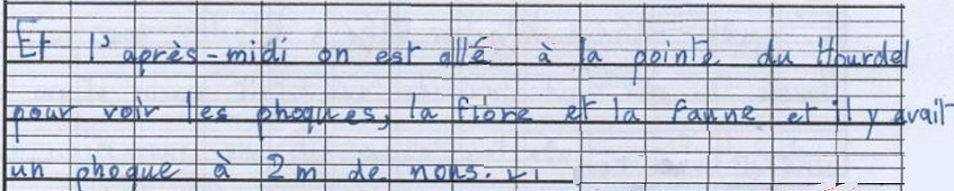 Et l'après-midi on est allé à la pointe du Hourdel
pour voir les phoques, la flore et la faune et il y avait
un phoque à 2m de nous.